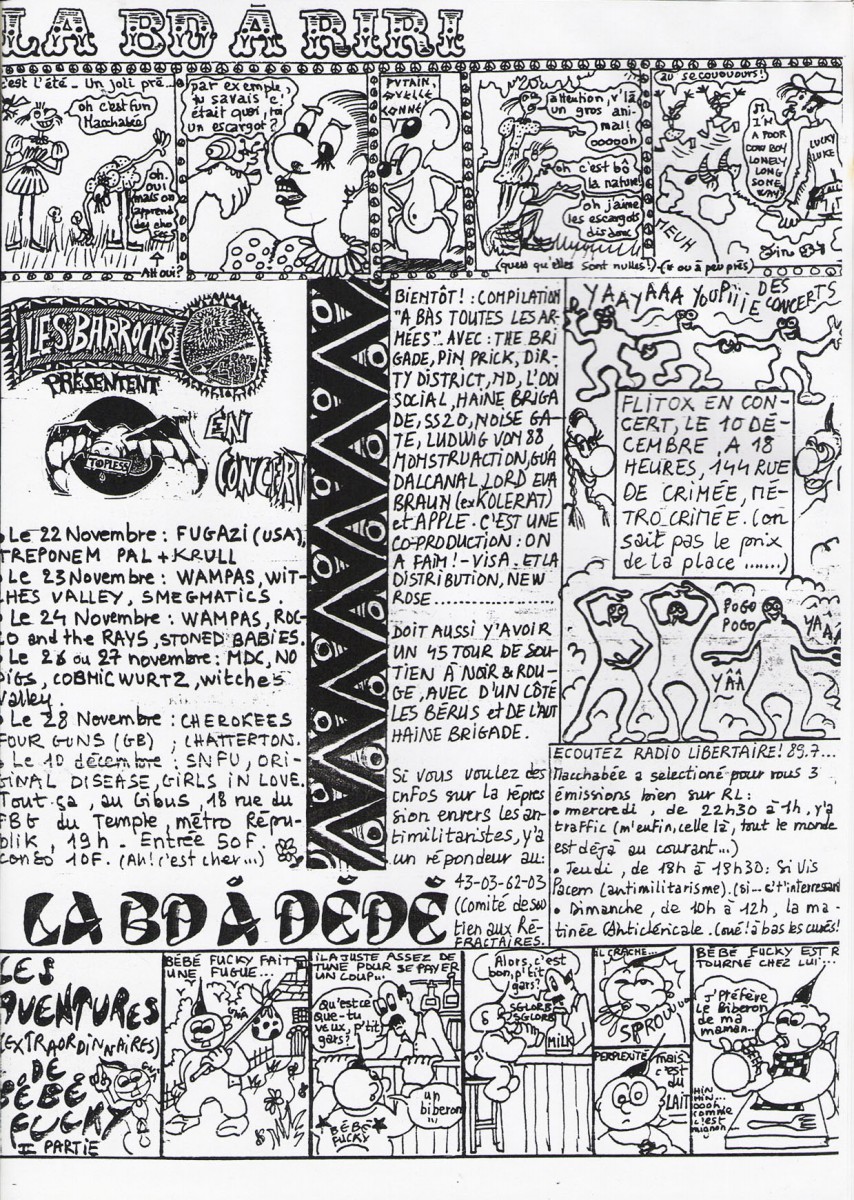 LA BD Ā RIRI
c'est l'été _ Un joli pré...
oh c'est fun
Macchabée
oh.
oui
mais on
apprend
des cho
ses!
Att oui?
par exemple,
tu savais c'
était quoi, toi
un escargot?
PUTAIN,
QU'ELLE
CONNE
attention, v'là
un gros ani-
mal!
ooooogh
oh c'est bô
la nature!
oh j'aime
les escargots
dis donc
(quess qu'elles sont nulles!)
au secouuours!
I'M
A POOR
COW BOY
LONELY
LONG
SOME
WAY*
LUCKY
LUKE
MEUH
(* ou à peu près)
LES BARROCKS
PRÉSENTENT
TOPLESS
EN
CONCERT
Le 22 Novembre : FUGAZi (USA),
TREPONEM PAL + KRULL
Le 23 Novembre : WAMPAS, WIT-
CHES VALLEY, SMEGMATICS.
Le 24 Novembre : WAMPAS, ROC-
CO and the RAYS, STONED BABIES.
Le 26 ou 27 novembre : MDC, NO
PIGS, COBMIC WURTZ, witches
valley.
Le 28 Novembre : CHEROKEES
FOUR GUNS (GB) ; CHATTERTON.
Le 10 décembre : SNFU, ORI-
GINAL DISEASE, GIRLS IN LOVE.
Tout ça, au Gibus, 18 rue du
FBG du Temple, métro Répu-
blik, 19h. Entrée 50F.
conso 10F. (Ah! c'est cher...)
BIENTÔT! : COMPILATION
"A BAS TOUTES LES AR-
MÉES". AVEC : THE BRI
GADE, PIN PRICK, DIR-
TY DISTRICT, MD, L'ODI
SOCIAL, HAINE BRIGA
DE, SS20, NOISE GA-
TE, LUDWIG VON 88
MONSTRUACTION, GUA
DALCANAL, LORD EVA
BRAUN (ex KOLERAT)
et APPLE. C'EST UNE
CO-PRODUCTION : ON
A FAIM! - VISA. ET LA
DISTRIBUTION, NEW
ROSE..................
DOIT AUSSI Y'AVOIR
UN 45 TOUR DE SOU-
TIEN À NOIR & ROU-
GE, AVEC D'UN CÔTÉ
LES BÉRUS et DE L'AUT
HAINE BRIGADE.
Si vous voulez des
infos sur la répres
sion envers les an-
timilitaristes, y'a
un répondeur au:
43-03-62-03
(Comité de sou
tien aux RÉ-
FRACTAIRES.
YAAYAAA YOUPiiiE DES
CONCERTS
FLITOX EN CON-
CERT, LE 10 DÉ-
CEMBRE, A 18
HEURES, 144 RUE
DE CRIMÉE, MÉ-
TRO CRIMÉE. (on
sait pas le prix
de la place .......)
POGO
POGO
YAA
YÂÂ
ECOUTEZ RADIO LIBERTAIRE! 89.7...
Macchabée a selectioné pour vous 3
émissions bien sur RL:
• mercredi, de 22h30 à 1h, y'a
traffic (m'enfin, celle là, tout le monde
est déjà au courant...)
• Jeudi, de 18h à 18h30: Si Vis
Pacem (antimilitarisme). (si... c't'interressan
• Dimanche, de 10h à 12h, la ma-
tinée Anticléricale. (oué! à bas les curés!
LA BD Á DĒDĒ
LES
AVENTURES
(EXTRAORDINNAIRES)
DE
BÉBÉ
FUCKY
II PARTIE
BÉBÉ FUCKY FAIT
UNE FUGUE...
iL A JUSTE ASSEZ DE
TUNE POUR SE PAYER
UN COUP...
Qu'est ce
que tu
veux, p'tit
gars?
un
biberon
BÉBÉ
FUCKY
Alors, c'est
bon, p'tit
gars?
SGLORB
SGLORB
MILK
iL CRACHE...
SPROUUU
PERPLEXITÉ
mais
c'est
du
LAIT
BÉBÉ FUCKY EST R
TOURNE CHEZ LUI...
J'Préfère
Le Biberon
de ma
maman...
HIN
HIN...
oooh
comme
c'est
mignon